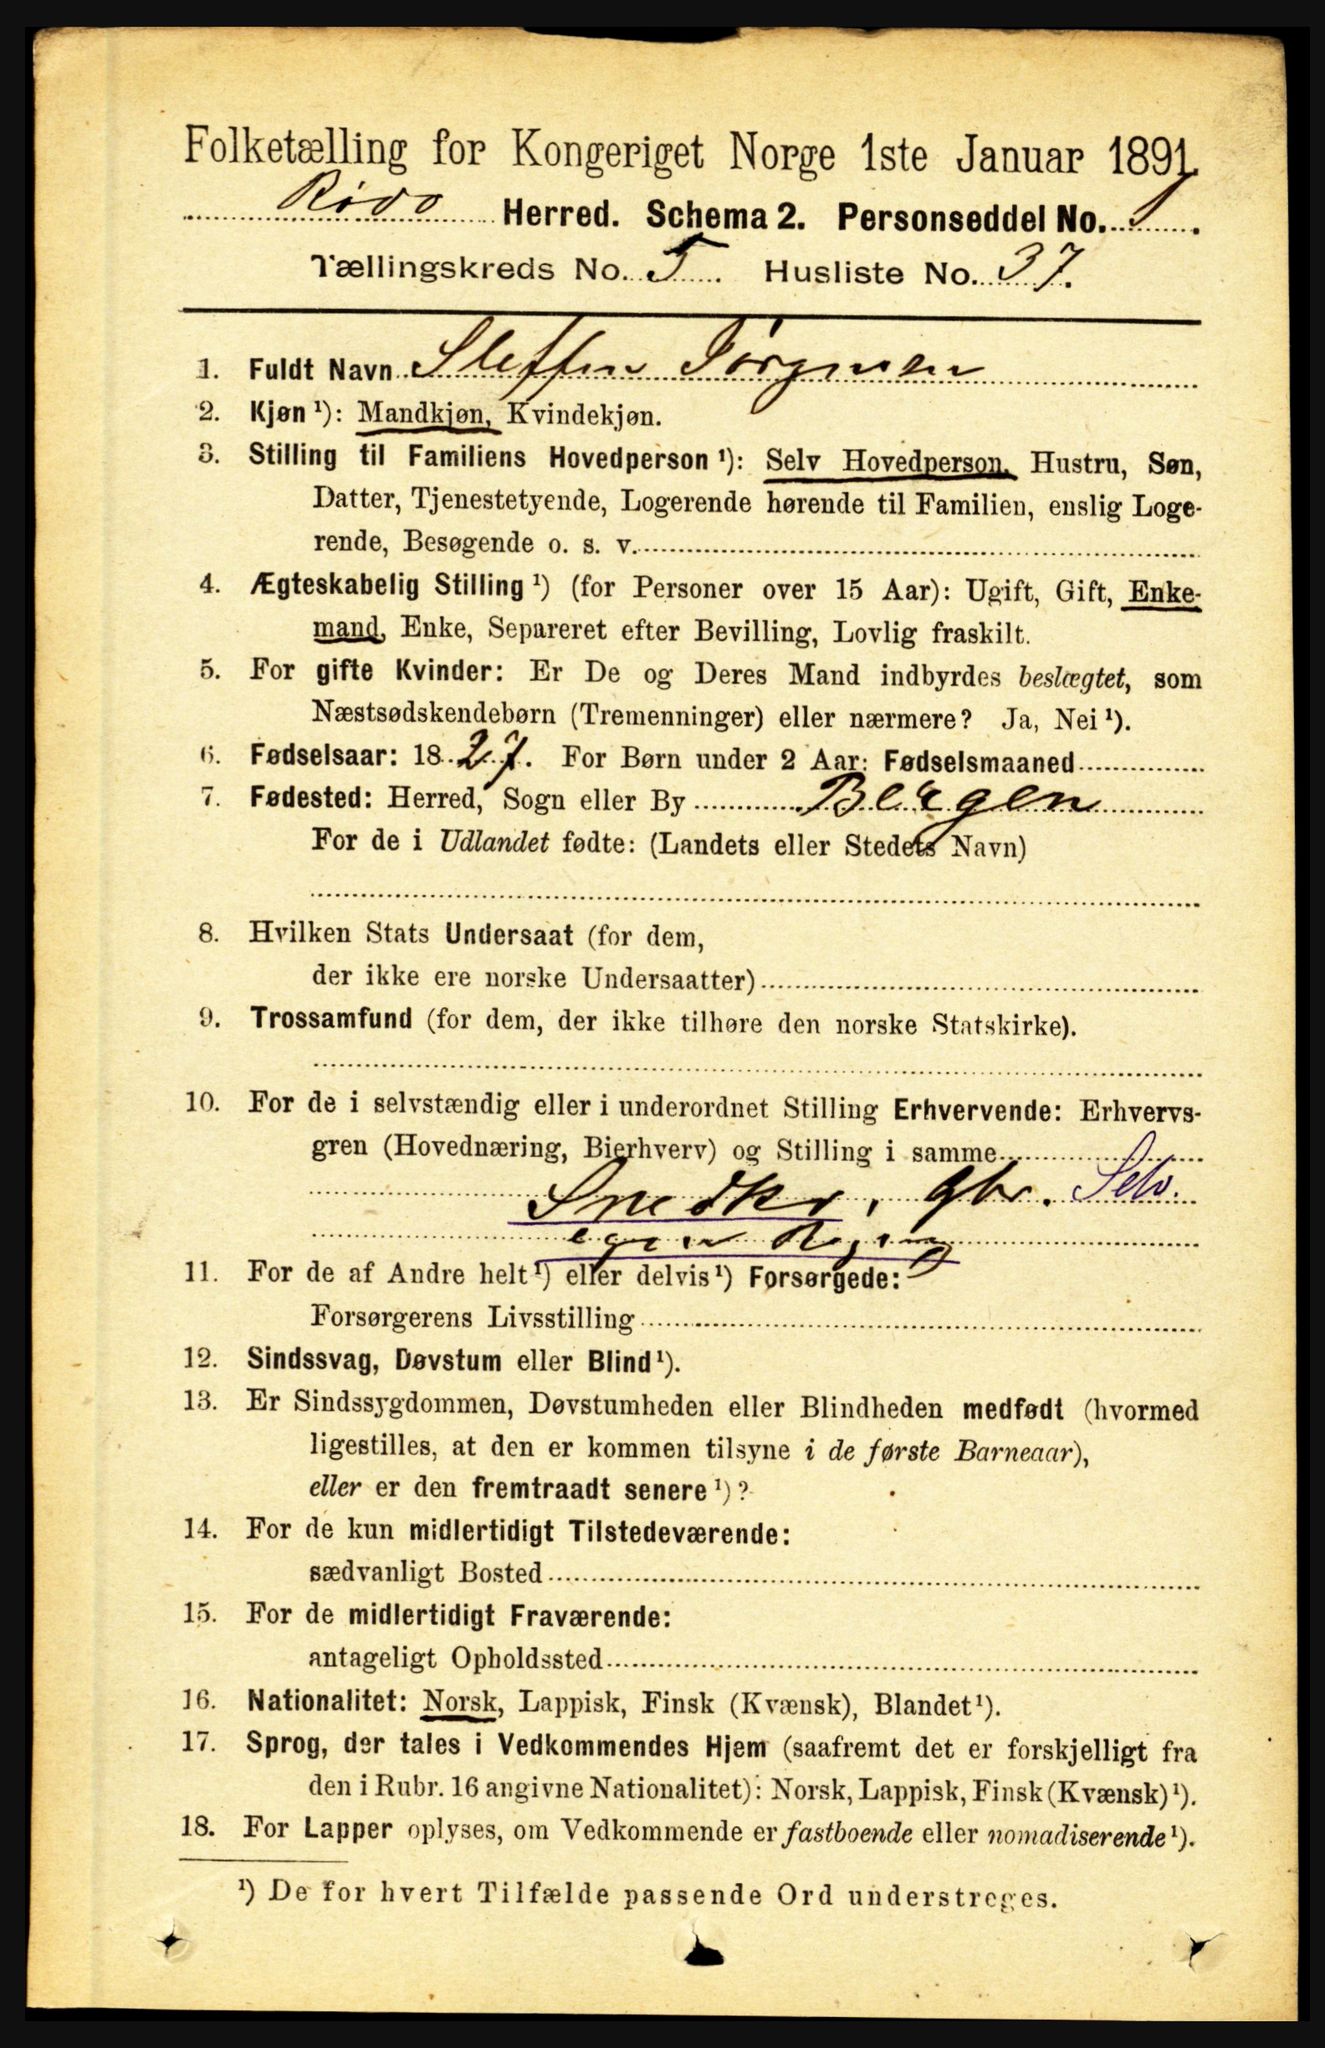 Folketælling for Kongeriget Norge 1ste Januar 1891.
Rödö Herred. Schema 2. Personseddel No. 1.
Tællingskreds No. 5 Husliste No. 37.
1. Fuldt Navn Steffen Jörgensen
2. Kjøn¹): Mandkjøn, Kvindekjøn.
3. Stilling til Familiens Hovedperson¹): Selv Hovedperson, Hustru, Søn,
Datter, Tjenestetyende, Logerende hørende til Familien, enslig Loge-
rende, Besøgende o. s. v.
4. Ægteskabelig Stilling¹) (for Personer over 15 Aar): Ugift, Gift, Enke-
mand, Enke, Separeret efter Bevilling, Lovlig fraskilt.
5. For gifte Kvinder: Er De og Deres Mand indbyrdes beslægtet, som
Næstsødskendebørn (Tremenninger) eller nærmere? Ja, Nei¹).
6. Fødselsaar: 1827. For Børn under 2 Aar: Fødselsmaaned
7. Fødested: Herred, Sogn eller By Bergen
For de i Udlandet fødte: (Landets eller Stedets Navn)
8. Hvilken Stats Undersaat (for dem,
der ikke ere norske Undersaatter)
9. Trossamfund (for dem, der ikke tilhøre den norske Statskirke).
10. For de i selvstændig eller i underordnet Stilling Erhvervende: Erhvervs-
gren (Hovednæring, Bierhverv) og Stilling i samme
Snedkr, gbr. Selv.
egen Regning
11. For de af Andre helt¹) eller delvis¹) Forsørgede:
Forsørgerens Livsstilling
12. Sindssvag, Døvstum eller Blind¹).
13. Er Sindssygdommen, Døvstumheden eller Blindheden medfødt (hvormed
ligestilles, at den er kommen tilsyne i de første Barneaar),
eller er den fremtraadt senere¹)?
14. For de kun midlertidigt Tilstedeværende:
sædvanligt Bosted
15. For de midlertidigt Fraværende:
antageligt Opholdssted
16. Nationalitet: Norsk, Lappisk, Finsk (Kvænsk), Blandet¹).
17. Sprog, der tales i Vedkommendes Hjem (saafremt det er forskjelligt fra
den i Rubr. 16 angivne Nationalitet): Norsk, Lappisk, Finsk (Kvænsk)¹).
18. For Lapper oplyses, om Vedkommende er fastboende eller nomadiserende¹).
¹) De for hvert Tilfælde passende Ord understreges.